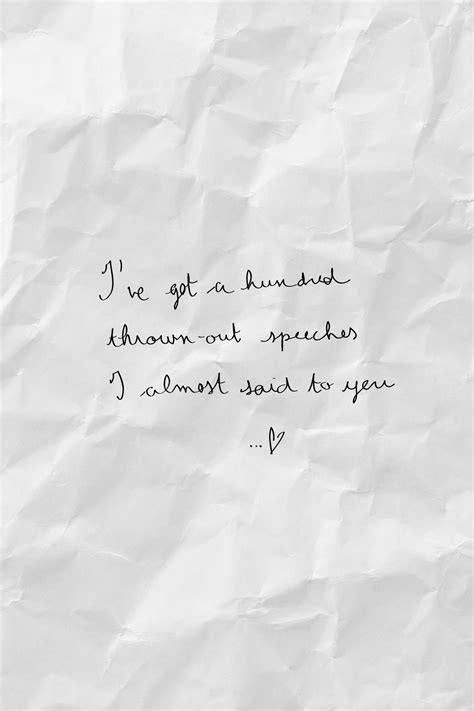 I've got a hundred
thrown-out speeches
I almost said to you
...♡